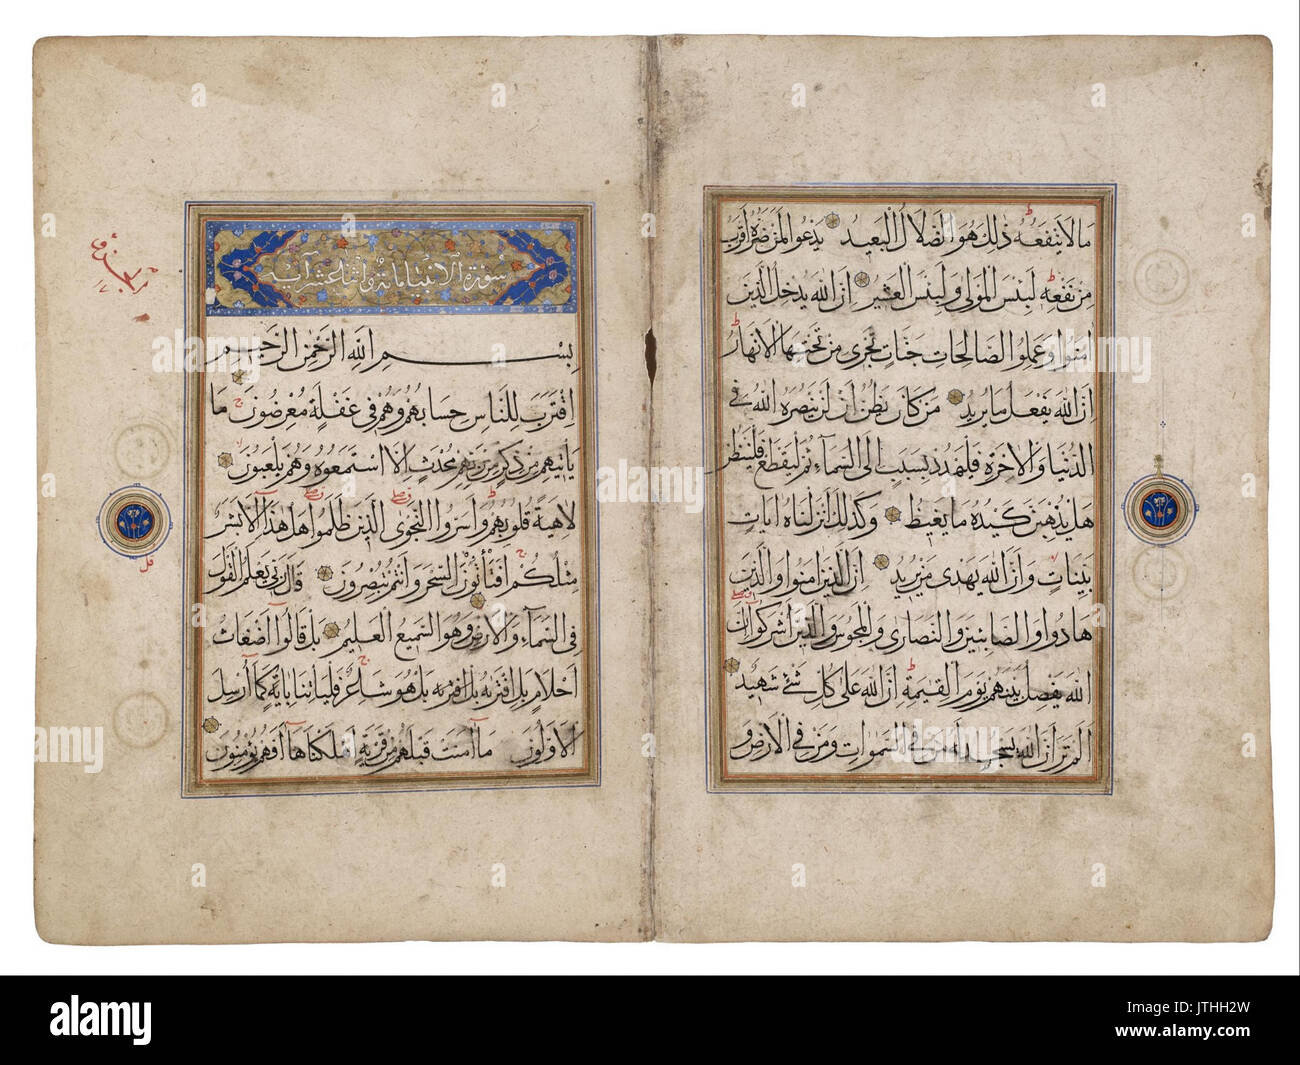 ما لا ينفعه ذلك هو الضلال البعيد يدعوا لمن ضره اقرب
من نفعه لبئس المولى ولبئس العشير ان الله يدخل الذين
امنوا وعملوا الصالحات جنات تجرى من تحتها الانهار
ان الله يفعل ما يريد من كان يظن ان لن ينصره الله فى
الدنيا والاخرة فليمدد بسبب الى السمآء ثم ليقطع فلينظر
هل يذهبن كيده ما يغيظ وكذلك انزلناه ايات
بينات وان الله يهدى من يريد ان الذين امنوا والذين
هادوا والصابئين والنصارى والمجوس والذين اشركوا ان
الله يفصل بينهم يوم القيمة ان الله على كل شئ شهيد
الم تر ان الله يسجد له من فى السموات ومن فى الارض و
سورة الانبيا مائة واثنا عشر آية
بسم الله الرحمن الرحيم
اقترب للناس حسابهم وهم فى غفلة معرضون ما
ياتيهم من ذكر من ربهم محدث الا استمعوه وهم يلعبون
لاهية قلوبهم واسروا النجوى الذين ظلموا هل هذا الا بشر
مثلكم افتأتون السحر وانتم تبصرون قال ربى يعلم القول
فى السمآء والارض وهو السميع العليم بل قالوا اضغاث
احلام بل افتريه بل هو شاعر فلياتنا باية كما ارسل
الاولون ما آمنت قبلهم من قرية اهلكناها افهم يؤمنون
alamy stock photo
JTHH2W
www.alamy.com